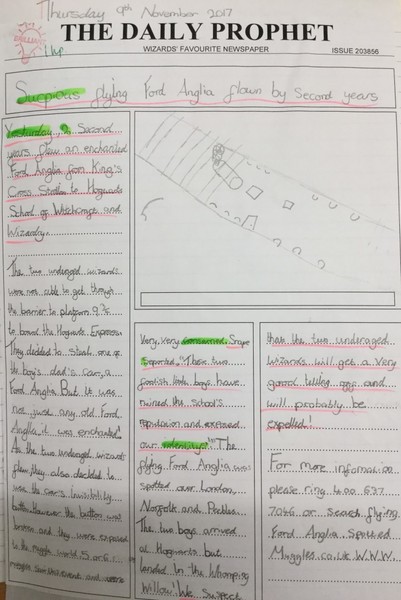 Thursday 9th November 2017
1hp
THE DAILY PROPHET
WIZARDS' FAVOURITE NEWSPAPER
ISSUE 203856
Suspious flying Ford Anglia flown by second years
Yesterday, 2 Second
years flew an enchanted
Ford Anglia from King's
Cross Station to Hogwarts
School of Witchcraft and
Wizardry.
The two underaged wizards
were not able to get through
the barrier to platform 9¾
to board the Hogwarts Express
They decided to steal one of
the boy's dad's car, a
Ford Anglia. But it was
not just any old Ford
Anglia, it was enchanted.
As the two underaged wizards
flew they also decided to
use the car's invisibility
button however the button was
broken and they were exposed
to the muggle world. 5 or 6
muggles saw this event and were
Very, very Snape
reported, "These two
foolish little boys have
ruined the school's
reputation and exposed
our "The
flying Ford Anglia was
spotted over London,
Norfolk and Peebles.
The two boys arrived
at Hogwarts but
landed in the Whomping
Willow! We suspect
that the two underaged
wizards will get a very
good telling off and
will probably be
expelled!
For more infomation
please ring 0800 637
7046 or search flying
Ford Anglia Spotted
Muggles.co.uk W.W.W.